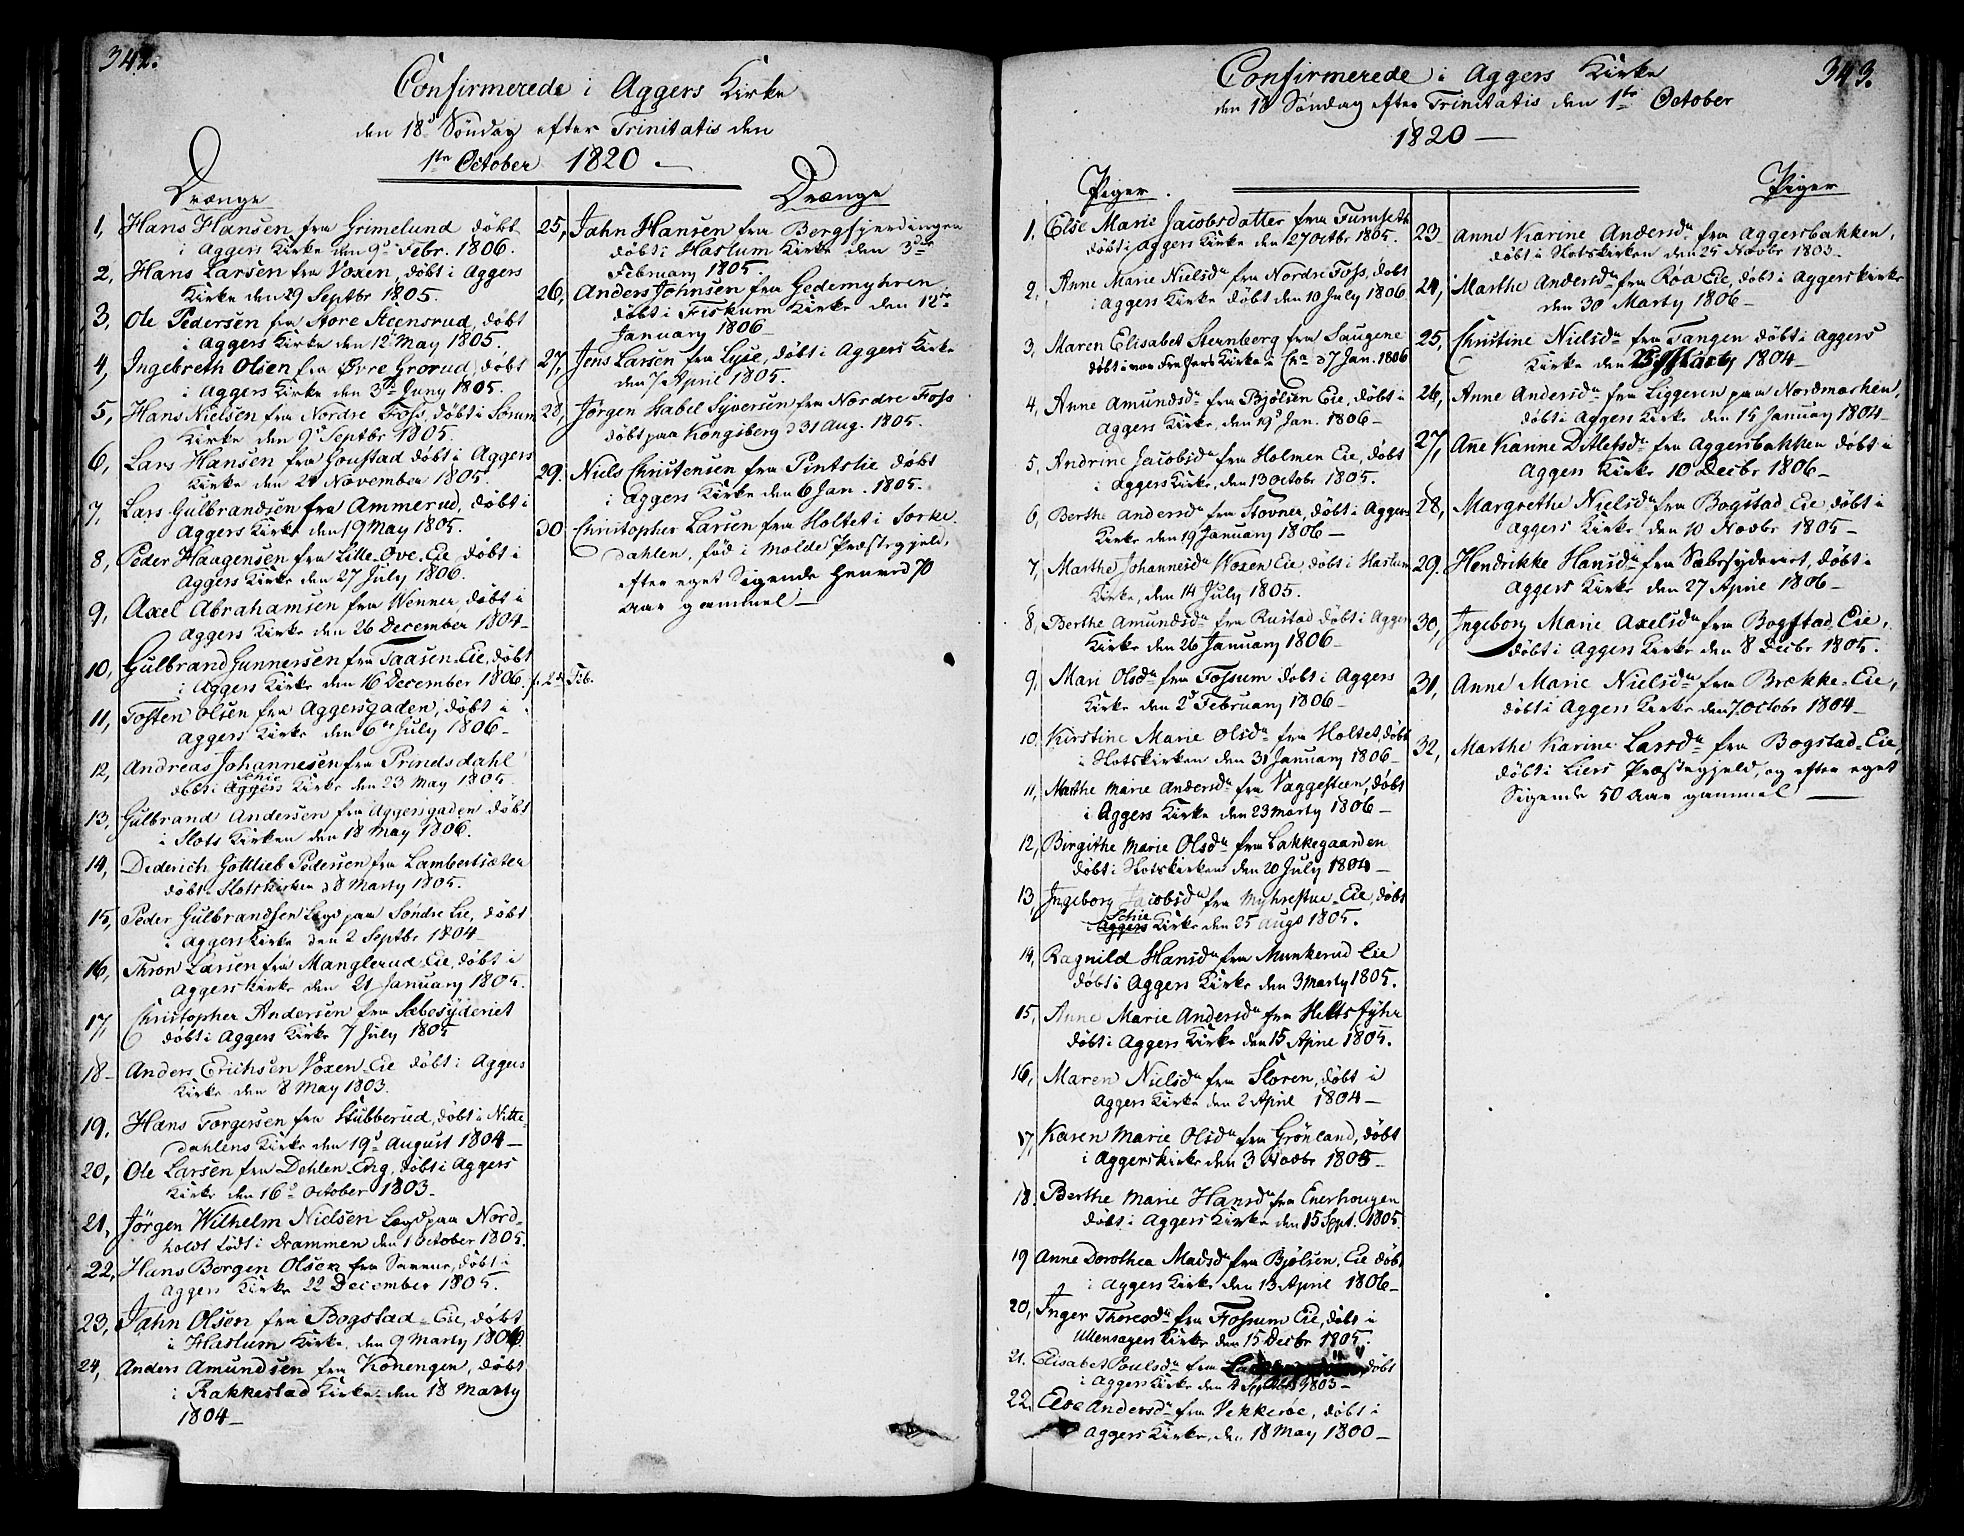 342.
Confirmerede i Aggers Kirke
den 18d Söndag efter Trinitatis den
1te October 1820 —
Drænge
1, Hans Hansen fra Grimelund döbt
i Aggers Kirke den 9d Febr. 1806.
2, Hans Larsen fra Voxen, döbt i Aggers
Kirke den 29 Septbr 1805.
3, Ole Pedersen fra Store Steensrud, döbt
i Aggers Kirke den 12 May 1805.
4, Ingebreth Olsen fra Övre Grorud, döbt
i Aggers Kirke den 3d Juny 1805.
5, Hans Nielsen fra Nordre Foss, döbt i Sörum
Kirke den 9d Septbr 1805.
6, Lars Hansen fra Goustad döbt i Aggers
Kirke den 21 November 1805.
7, Lars Gulbrandsen fra Ammerud, döbt i
Aggers Kirke den 19 May 1805.
8, Peder Haagensen fra Lille Ove. Eie döbt i
Aggers Kirke den 27 July 1806.
9, Axel Abrahamsen fra Wenner, döbt i
Aggers Kirke den 26 December 1804—
10, Gulbrand Gunnersen fra Taasen Eie, döbt
i Aggers Kirke den 16 December 1806. f. 2d Feb.
11, Tosten Olsen fra Aggersgaden, döbt i
Aggers Kirke den 6te July 1806—
12, Andreas Johannesen fra Prindsdahl
döbt i Aggers Schie Kirke den 23 May 1805.
13, Gulbrand Andersen fra Aggersgaden döbt
i Slots Kirken den 18 May 1806.
14, Diderich Gottlieb Pedersen fra Lambertsæter
döbt i Slotskirken d 8 Marty 1805.
15, Peder Gulbrandsen Legd paa Söndre Lie, döbt
i Aggers Kirke den 2 Septbr 1804—
16, Thron Larsen fra Manglerud Eie, döbt i
Aggers Kirke den 21 January 1805.
17, Christopher Andersen fra Sæbesyderiet
döbt i Aggers Kirke 7 July 1805
18— Anders Erichsen Voxen Eie döbt i Aggers
Kirke den 8 May 1803.
19, Hans Torgersen fra Stubberud, döbt i Nitte-
dahlens Kirke den 19d August 1804—
20, Ole Larsen fra Dehlen Eng, döbt i Aggers
Kirke den 16d October 1803.
21, Jörgen Wilhelm Nielsen Legd paa Nord-
holdt födt i Drammen den 1 October 1805.
22, Hans Borgen Olsen fra döbt i
Aggers Kirke 22 December 1805.
23, Jahn Olsen fra Bogstad Eie, döbt
i Haslum Kirke, den 9 Marty 1806.
24, Anders Amundsen fra Konengen, döbt
i Rakkestad Kirke den 18 Marty
1804—
Drænge
25, Jahn Hansen fra Bergfjerdingen
döbt i Haslum Kirke den 3die
February 1805.
26, Anders Johnsen fra Gedemyhren
döbt i Fiskum Kirke den 12te
January 1806—
27, Jens Larsen fra Lyse, döbt i Aggers Kirke
den 7 April 1805.
28, Jörgen Stabel Syversen fra Nordre Foss
döbt paa Kongsberg d 31 Aug. 1805.
29. Niels Christensen fra Pintslie döbt
i Aggers Kirke den 6 Jan. 1805.
30 Christopher Larsen fra Holtet i Sörke
dahlen, föd i Molde Præstegjeld,
efter eget Sigende henved 70
Aar gammel —
343.
Confirmerede i Aggers Kirke
den 18 Söndag efter Trinitatis den 1te October
1820 —
Piger
1. Else Marie Jacobsdatter fra Furuseth
döbt i Aggers Kirke den 27 Octbr 1805.
2, Anne Marie Nielsdr fra Nordre Foss, döbt
i Aggers Kirke döbt den 10 July 1806
3, Maren Elisabet Sternberg fra Saugene
döbt i vor Frelsers Kirke i Chra d 7 Jan. 1806
4, Anne Amundsdr fra Bjölsen Eie, döbt i
Aggers Kirke, den 19d Jan. 1806—
5, Andrine Jacobsdr fra Holmen Eie, döbt
i Aggers Kirke, den 13 Octobr 1805.
6, Berthe Andersdr fra Stovner, döbt i Aggers
Kirke den 19 January 1806—
7, Marthe Johannesdr Woxen Eie, döbt i Haslum
Kirke, den 14 July 1805.
8, Berthe Amundsdr fra Rustad döbt i Aggers
Kirke den 26 January 1806—
9, Mari Olsdr fra Fossum döbt i Aggers
Kirke den 2d February 1806—
10. Kirstine Marie Olsdr fra Holtet, döbt
i Slotskirken den 31 January 1806—
11, Marthe Marie Andersdr fra Vaggesteen, döbt
i Aggers Kirke den 23 Marty 1806—
12, Birgithe Marie Olsdr fra Lakkegaarden
döbt i Slotskirken den 20 July 1804—
13, Ingeborg Jacobsdr fra Myhrestue Eie, döbt
i Aggers Schie Kirke den 25 Augs 1805.
14, Ragnild Hansdr fra Munkerud Eie
döbt i Aggers Kirke den 3 Marty 1805.
15, Anne Marie Andersdr fra
döbt i Aggers Kirke den 15 April 1805.
16, Maren Nielsdr fra Sloren, döbt i
Aggers Kirke den 2 April 1804—
17, Karen Marie Olsdr fra Grönland, döbt
i Aggers Kirke den 3 Novbr 1805—
18. Berthe Marie Hansdr fra Enerhougen
döbt i Aggers Kirke den 15 Sept. 1805.
19 Anne Dorothea Madsdr fra Bjölsen, Eie döbt
i Aggers Kirke den 13 April 1806—
20, Inger Thoresdr fra Fossum Eie, döbt i
Ullensagers Kirke den 15 Decbr 1805.
21. Elisabet Poulsdr fra döbt
i Aggers Kirke den 4 1803—
22. Else Andersdr fra Vekkeröe, döbt i
Aggers Kirke, den 18 May 1800—
Piger
23— Anne Karine Andersdr fra Aggersbakken,
döbt i Slotskirken den 25 Novbr 1803—
24, Marthe Andersdr fra Roa Eie, döbt i Aggerskirke
den 30 Marty 1806—
25, Christine Nielsdr fra Tangen döbt i Aggers
Kirke den 1804—
26, Anne Andersdr fra Liggeren paa Nordmarken,
döbt i Aggers Kirke den 15 January 1804—
27, Ane Karine Ditlefsdr fra Aggersbakken döbt i
Aggers Kirke 10 Decbr 1806—
28, Margrethe Nielsdr fra Bogstad Eie döbt i
Aggers Kirke den 10 Novbr 1805—
29. Hendrikke Hansdr fra Sæbesyderiet, döbt i
Aggers Kirke den 27 April 1806—
30, Ingeborg Marie Axelsdr fra Bogstad Eie,
döbt i Aggers Kirke den 8 Decbr 1805.
31, Anne Marie Nielsdr fra Brække Eie,
döbt i Aggers Kirke den 7. Octobr 1804—
32, Marthe Karine Larsdr fra Bogstad Eie,
döbt i Liers Præstegjeld, og efter eget
Sigende 50 Aar gammel —